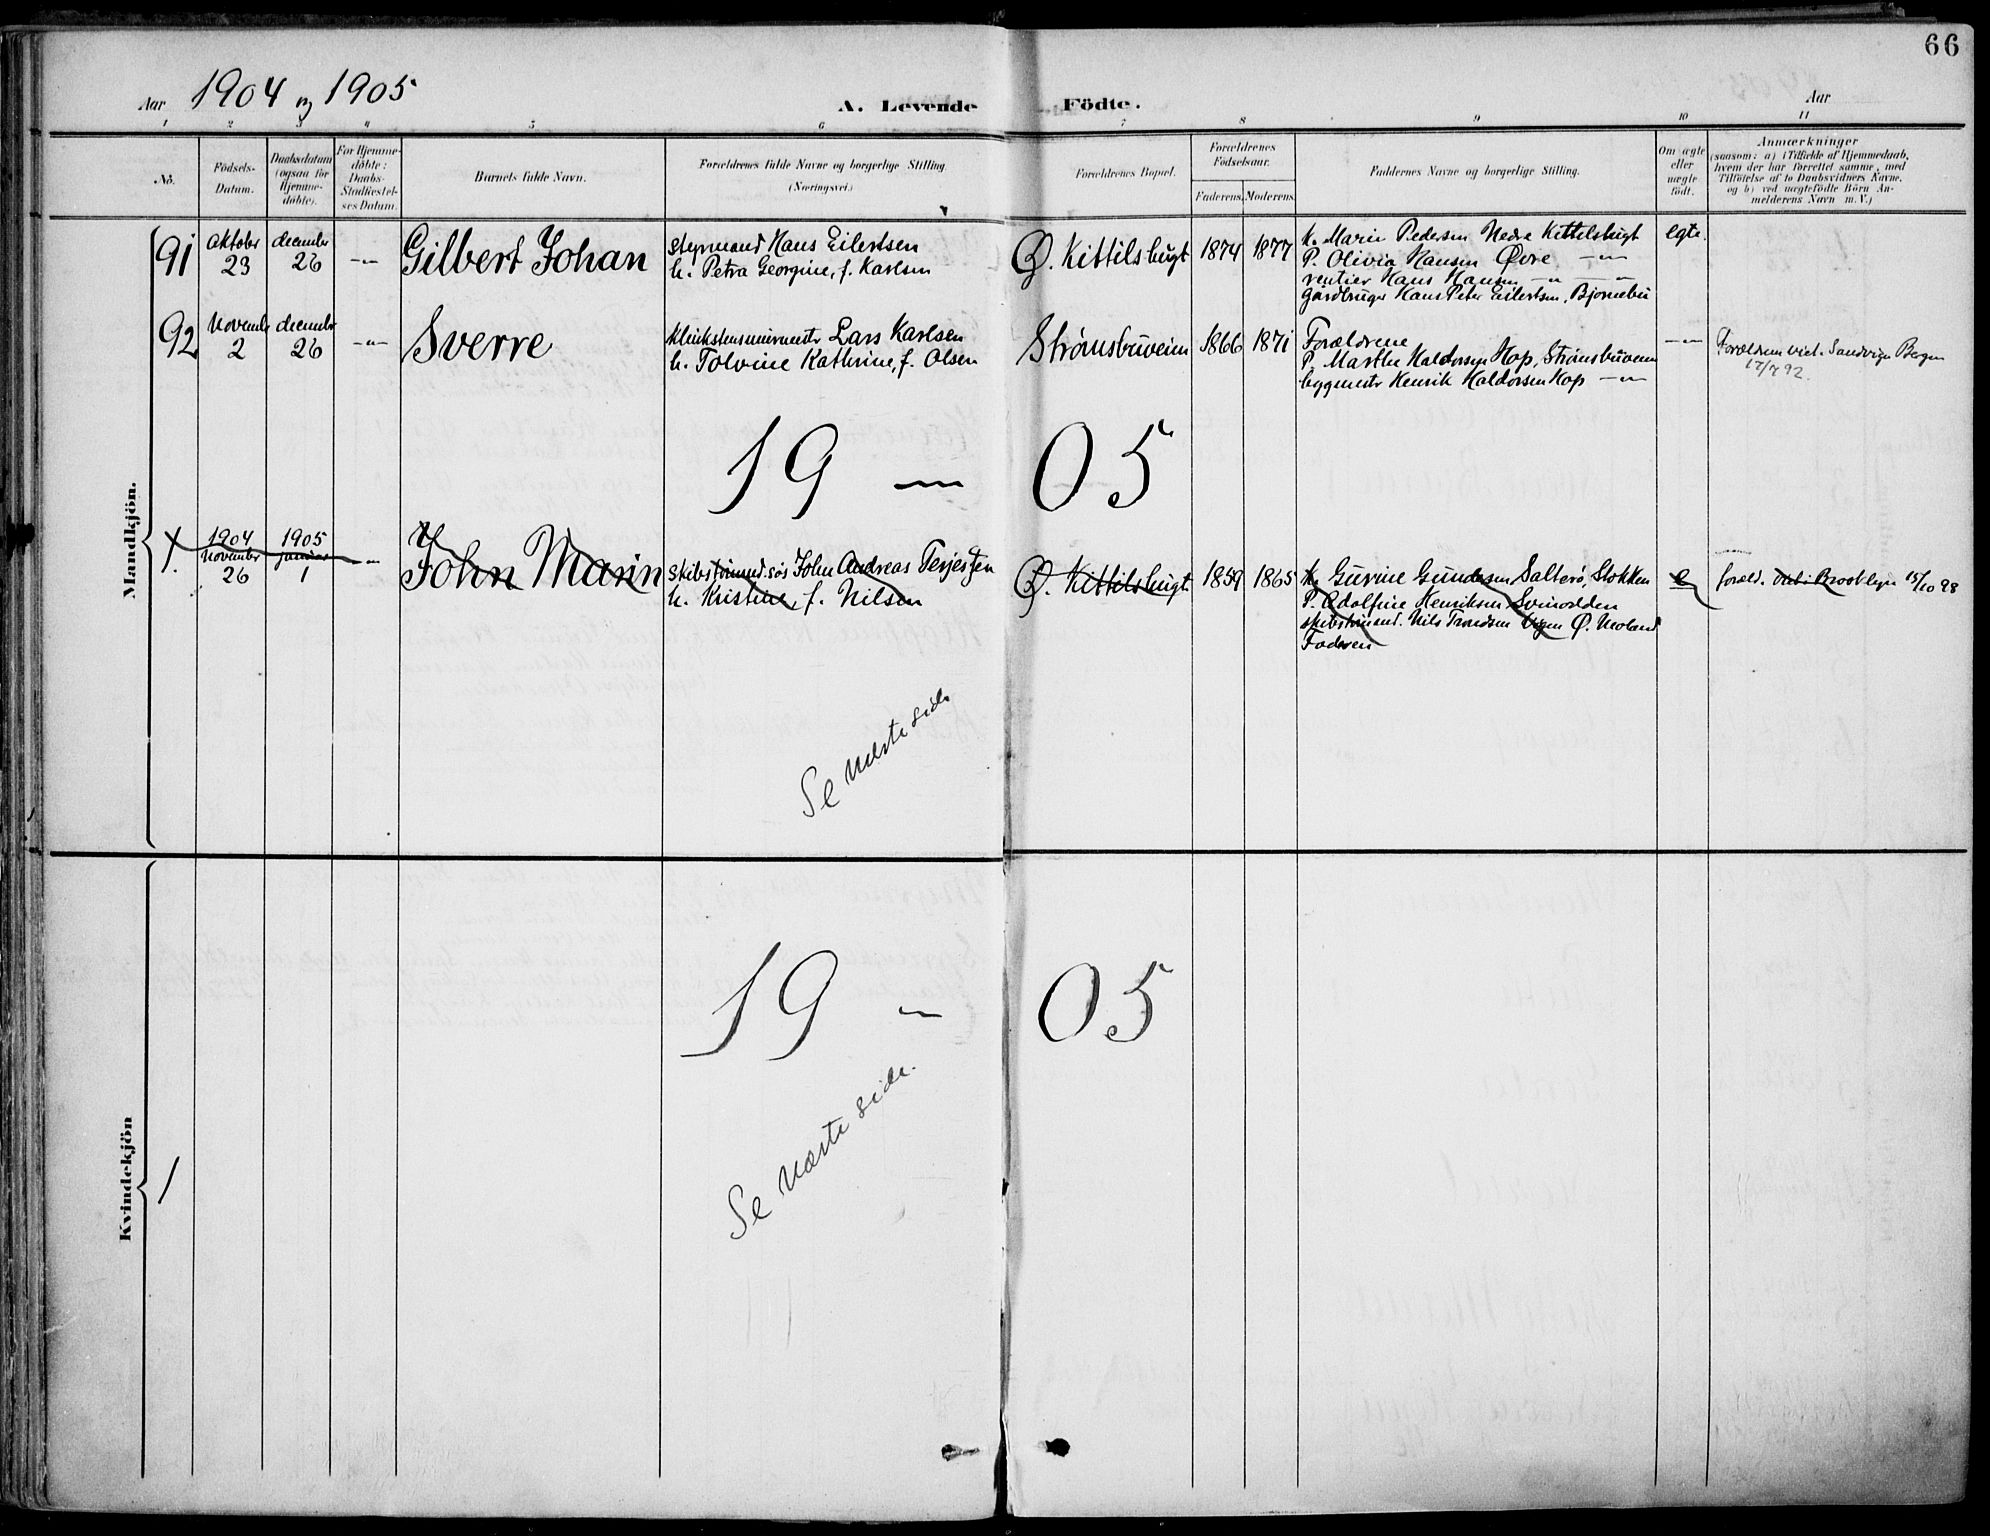 66
Aar 1904 og 1905
A. Levende Födte.
Aar
1 2 3 4 5 6 7 8 9 10 11
No.
Födsels-
Datum.
Daabsdatum
(ogsaa for
Hjemme-
döbte).
For Hjemme-
döbte:
Daabs-
Stadfæstel-
ses Datum.
Barnets fulde Navn.
Forældrenes fulde Navne og borgerlige Stilling.
(Næringsvei.)
Forældrenes Bopæl.
Forældrenes
Födselsaar.
Faderens. Moderens.
Faddernes Navne og borgerlige Stilling.
Om ægte
eller
uægte
født.
Anmærkninger
(saasom: a) i Tilfælde af Hjemmedaab,
hvem der har forrettet samme, med
Tilföielse af to Daabsvidners Navne.
og b) ved uægtefödte Börn An-
melderens Navn m. V.)
Mandkjön.
91 Oktober 23 december 26 -"- Gilbert Johan
styrmand Hans Eilertsen
h. Petra Georgine, f. Karlsen
Ø. Kittilsbugt 1874 1877
K. Marie Pedersen Nedre Kittelsbugt
P. Olivia Hansen Øvre -"-
rentier Hans Hansen -"- -"-
gårdbruger Hans Peter Eilertsen, Bjornebu
egte.
92 Novembr 2 decembr 26 -"- Sverre
Lars Karlsen
h. Tolvine Kathrine, f. Olsen
Strømsbuveien 1866 1871
Forældrene
P. Marthe Haldorsen Hop, Strømsbuveien
bygmestr Henrik Haldorsen Hop -"-
-"-
Forældrene viet i Sandvigen Bergen
17/7 92.
19 — 05
1. 1904 November 26 1905 januar 1 -"- John Marin
John Andreas Terjesen
h. Kristine, f. Nilsen
Ø. Kittilsbugt 1859 1865
K. Gurine Gundersen Salterø, Stokken
P. Adolfine Henriksen, Svinodden
skibstømmd. Nils Trondsen Ø. Moland
Faderen
e
foræld. 15/10 98
Se næste side
Kvindekjön
1
19 — 05
Se næste side.